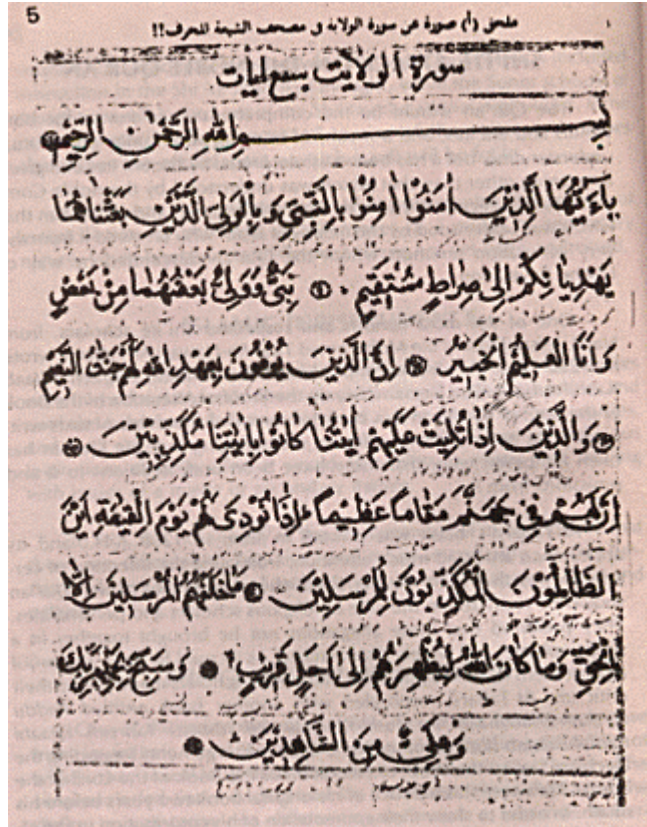 5
ملحق (أ) صورة عن سورة الولاية في مصحف الشيعة المحرف!!
سورة الولايت سبع ايات
بسم الله الرحمن الرحيم
يأيها الذين امنوا امنوا بالنبي وبالولي الذين بعثناهما
يهديانكم الى صراط مستقيم نبي وولي بعضهما من بعض
وانا العليم الخبير ان الذين يوفون بعهد الله لهم جنت النعيم
والذين اذا تليت عليهم ايتنا كانوا بايتنا مكذبين
ان لهم في جهنم مقاما عظيما اذا نودي لهم يوم القيمة اين
الظالمون المكذبون للمرسلين ما خلفهم المرسلين الا
بالحق وما كان الله ليظهرهم الى اجل قريب وسبح بحمد ربك
وعلي من الشاهدين